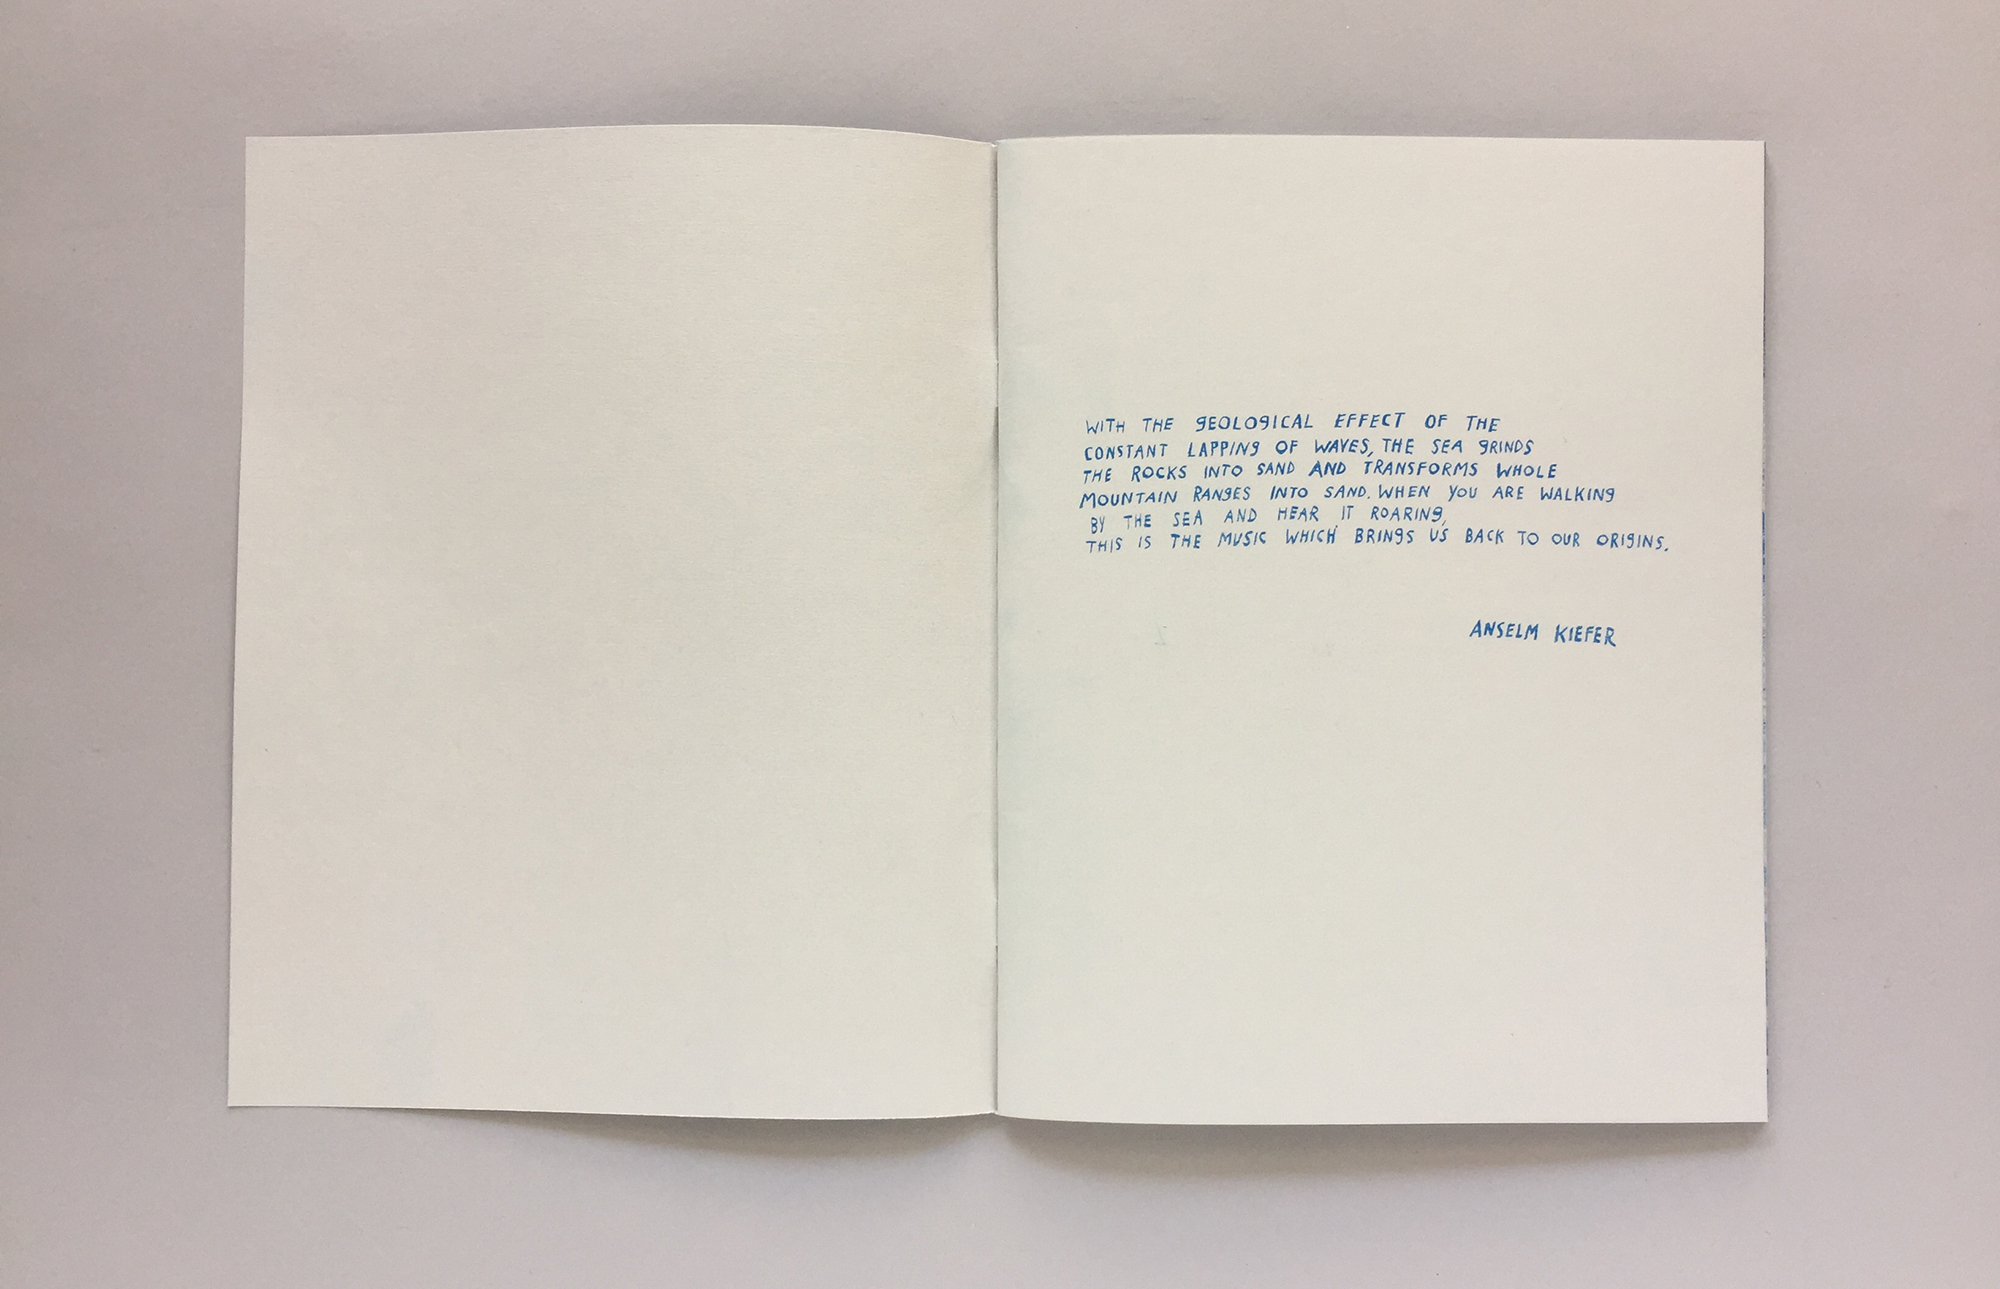 WITH THE GEOLOGICAL EFFECT OF THE
CONSTANT LAPPING OF WAVES, THE SEA GRINDS
THE ROCKS INTO SAND AND TRANSFORMS WHOLE
MOUNTAIN RANGES INTO SAND. WHEN YOU ARE WALKING
BY THE SEA AND HEAR IT ROARING,
THIS IS THE MUSIC WHICH BRINGS US BACK TO OUR ORIGINS.
ANSELM KIEFER